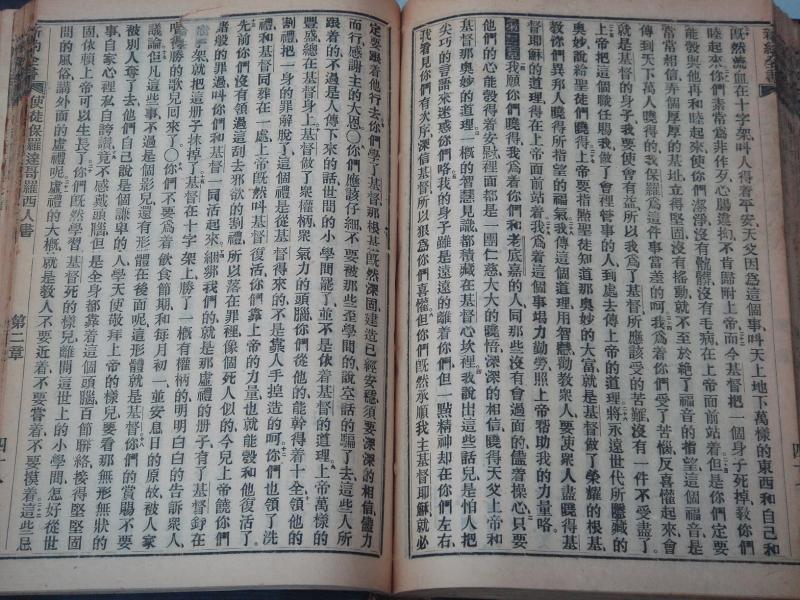 新約全書
既然流血在十字架叫人得着平安天父因爲這個事叫天上地下萬樣的東西和自己和
睦起來你們素常爲非作歹心腸違拗不肯歸附上帝而今基督把一個身子死掉教你們
能彀與他再和睦起來使你們潔淨沒有骯髒沒有毛病在上帝面前站着但是你們定要
常常相信弄個厚厚的基址立得堅固沒有搖動就不至於絶了福音的指望這個福音是
傳到天下萬人曉得的我保羅爲這件事當差的呵我爲着你們受了苦惱反喜懽起來會
就是基督的身子我要使會有益所以我爲了基督所應該受的苦難沒有一件不受盡了
上帝把這個職任賜我做了會裡管事的人到處去傳上帝的道理將永遠世代所隱藏的
奧妙說給聖徒們曉得上帝要指點聖徒知道那奧妙的大富就是基督做了榮耀的根基
教你們異邦人曉得所指望的福氣我傳這個道理用智慧勸教衆人要使衆人盡曉得基
督耶穌的道理得在上帝面前站着我爲着這個事竭力勤勞照上帝帮助我的力量咯
我願你們曉得我爲着你們和老底嘉的人同那些沒有會過面的儘着操心只要
他們的心能彀得着安慰裡面都是一團仁慈大大的曉悟深深的相信曉得天父上帝和
基督那奧妙的道理一概的智慧見識都積藏在基督心坎裡我說出這些話兒是怕人把
尖巧的言語來迷惑你們咯我的身子雖是遠遠的離開你們但一點精神却在你們左右
我看見你們有次序深信基督所以狠爲你們喜懽但你們既然承順我主基督耶穌就必
定要跟着他行去你們學了基督那根基既然深固建造已經安穩須要深深的相信儘力
而行感謝主的大恩○你們應該仔細不要被那些歪學問的說空話的騙了去這些人所
跟着的不過是人傳下來的話世間的小學問罷了並不是依着基督的道理上帝萬樣的
豐盛總在基督身上基督做了衆權柄衆氣力的頭腦你們從他的能幹得着十全領他的
割禮把一身的罪解脫了這個禮是從基督得來的不是靠人手揑造的呵你們也領了洗
禮和基督同葬在一處上帝既然叫基督復活你們靠上帝的力量也就能彀和他復活了
先前你們沒有領過這割去邪欲的割禮所以落在罪裡像個死人似的今兒上帝饒你們
諸般的罪過叫你們和基督一同活起來綑綁我們的就是那虛禮的册子有了基督釘在
十字架就把這册子抹掉了基督在十字架上勝了一概有權柄的明明白白的告訴衆人
唱得勝的歌兒回來了○你們不要爲着飲食節期和每月初一並安息日的原故被人家
議論但凡這些事不過是個影兒還有形體在後面呢這形體就是基督你們的賞賜不要
被別人奪了去他們自己說是個謙卑的人學天使敬拜上帝的樣兒要看那無形無狀的
事自家心裡私自誇讚竟不感戴頭腦但是全身都靠着這個頭腦百節聯絡接得堅堅固
固依頼上帝可以生長了你們既然學習基督死的樣兒離開這世上的小學問怎好從世
間的風俗講外面的虛禮呢虛禮的大概就是教人不要近着不要嘗着不要摸着這些忌
新約全書　使徒保羅達哥羅西人書　第二章